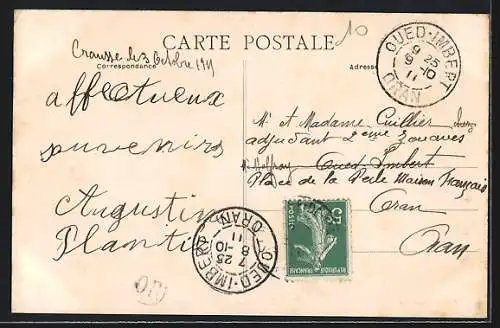 CARTE POSTALE
10
Correspondance
Adresse
Crausse le 3 Octobre 1911
affectueux
souvenirs
Augustin
Plantié
OUED-IMBERT
9 25
9 -10
11
ORAN
Mr et Madame Cuillier
adjudant 2eme Zouaves
Oued Imbert
Place de la Perle Maison Français
Oran
Oran
5c
POSTES
REPUBLIQUE FRANÇAISE
OUED-IMBERT
7 25
8 -10
11
ORAN